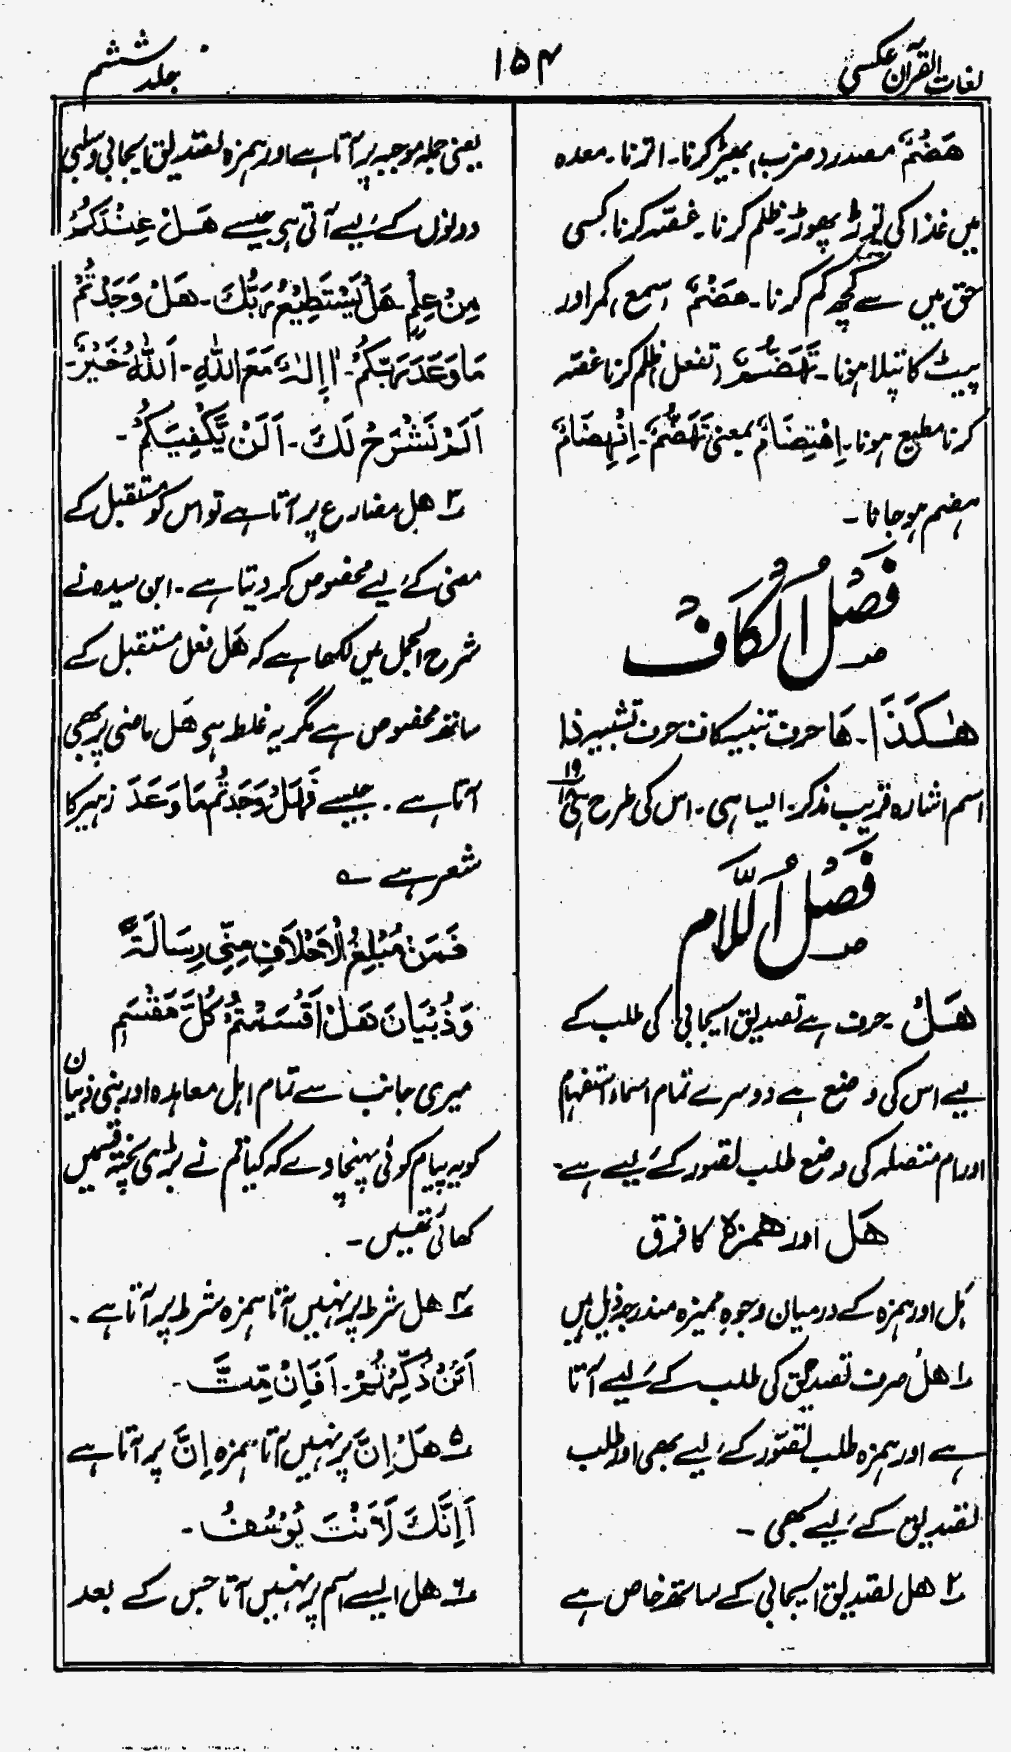 لغات القرآن عکسی
۱۵۴
جلد ششم
هَضْمٌ مصدر (ضرب) بھیڑ کرنا۔ اترنا۔ معدہ
میں غذا کی توڑ پھوڑ۔ ظلم کرنا۔ غصہ کرنا کسی
حق میں سے کچھ کم کرنا۔ هَضَمٌ (سمع) کمر اور
پیٹ کا پتلا ہونا۔ تَهَضُّمٌ (تفعل) ظلم کرنا غصہ
کرنا مطیع ہونا۔ اِهْتِضَامٌ بمعنی تَهَضُّمٌ۔ اِنْهِضَامٌ
ہضم ہو جانا۔
فَصْلُ الْکَاف
هٰکَذَا۔ هَا حرف تنبیہ کاف حرف تشبیہ ذا
اسم اشارہ قریب مذکر۔ ایسا ہی۔ اس کی طرح ہی ۱۹
فَصْلُ اللَّام
هَلْ حرف ہے تصدیق ایجابی کی طلب کے
لیے اس کی وضع ہے دوسرے تمام اسماء استفہام
اور ام متصلہ کی وضع طلب تصور کے لیے ہے۔
هَل اور همزه کا فرق
ہل اور ہمزہ کے درمیان وجوہِ ممیزہ مندرجہ ذیل ہیں
۱ هل صرف تصدیق کی طلب کے لیے آتا
ہے اور ہمزہ طلب تصوّر کے لیے بھی اور طلب
تصدیق کے لیے بھی ۔
۲ هل تصدیق ایجابی کے ساتھ خاص ہے
یعنی جملہ موجبہ پر آتا ہے اور ہمزہ تصدیق ایجابی و سلبی
دونوں کے لیے آتی ہی جیسے هَلْ عِنْدَكُمْ
مِنْ عِلْمٍ۔ هَلْ يَسْتَطِيْعُ رَبُّكَ۔ هَلْ وَجَدْتُّمْ
مَا وَعَدَ رَبُّكُمْ۔ اَاِلٰهٌ مَعَ اللّٰهِ۔ آللّٰهُ خَيْرٌ۔
اَلَمْ نَشْرَحْ لَكَ۔ اَلَنْ يَّكْفِيَكُمْ ۔
۳ هل مضارع پر آتا ہے تو اس کو مستقبل کے
معنی کے لیے مخصوص کر دیتا ہے۔ ابن سیدہ نے
شرح الجمل میں لکھا ہے کہ هَل فعل مستقبل کے
ساتھ مخصوص ہے مگر یہ غلط ہی هَل ماضی پر بھی
آتا ہے ۔ جیسے فَهَلْ وَجَدتُّم مَا وَعَدَ زہیر کا
شعر ہے ؎
فَمَنْ مُبْلِغُ الْاَحْلَافِ مِنِّی رِسَالَةً
وَذُبْيَانَ هَلْ اَقْسَمْتُمْ كُلَّ مَقْسَمِ
میری جانب سے تمام اہل معاہدہ اور بنی ذبیان
کو یہ پیام کوئی پہنچا دے کہ کیا تم نے بڑی ہی پختہ قسمیں
کھائی تھیں ۔
۴ هل شرط پر نہیں آتا ہمزہ شرط پر آتا ہے ۔
اَئِنْ ذُكِّرْتُمْ۔ اَفَاِنْ مِّتَّ ۔
۵ هَلْ اِنَّ پر نہیں آتا ہمزہ اِنَّ پر آتا ہے
اَاِنَّكَ لَاَنْتَ يُوْسُفُ ۔
۶ هل ایسے اسم پر نہیں آتا جس کے بعد